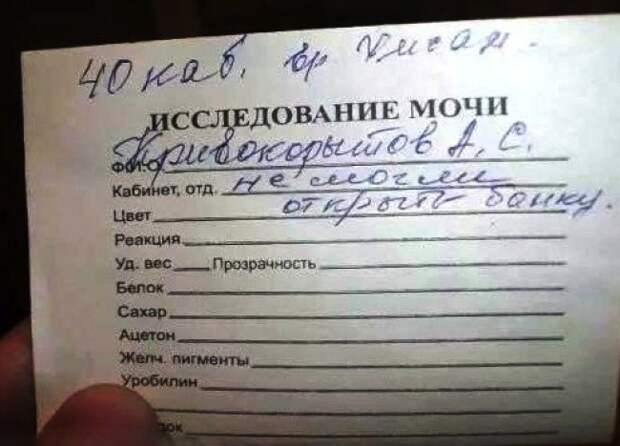 40 каб. вр
ИССЛЕДОВАНИЕ МОЧИ
Ф.И.О. Кривокорытов А. С.
Кабинет, отд. не могли
Цвет открыть банку.
Реакция
Уд. вес Прозрачность
Белок
Сахар
Ацетон
Желч. пигменты
Уробилин